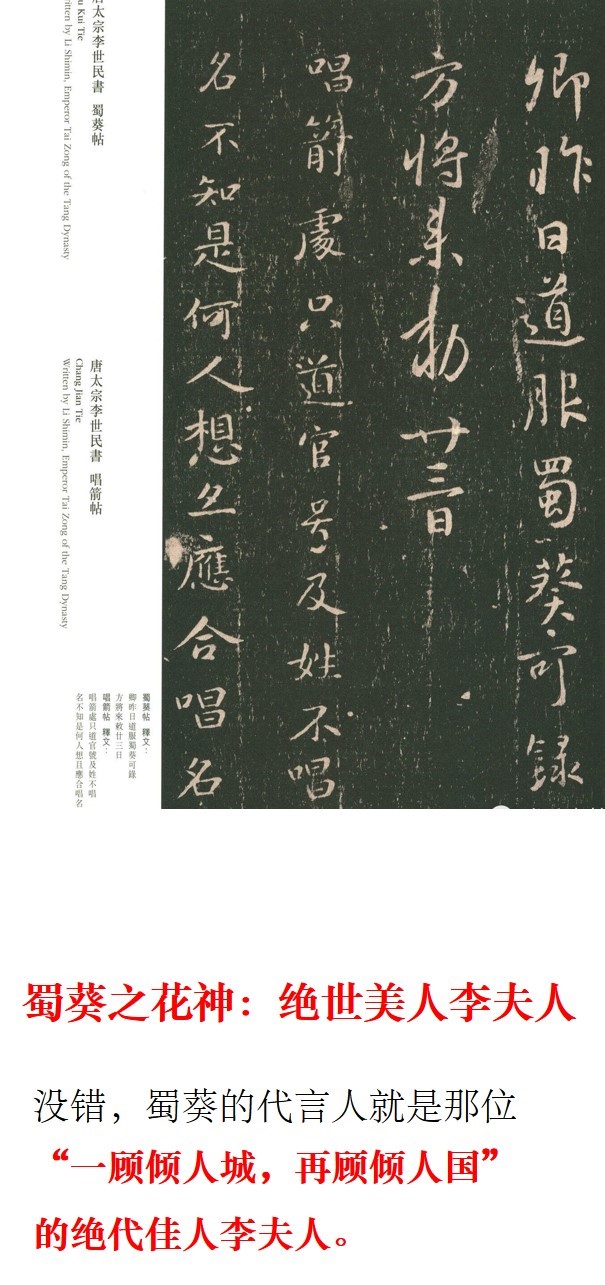 卿昨日道服蜀葵可録
方將来勑廿三日
唱箭處只道官号及姓不唱
名不知是何人想且應合唱名
唐太宗李世民書 蜀葵帖
u Kui Tie
Written by Li Shimin, Emperor Tai Zong of the Tang Dynasty
唐太宗李世民書 唱箭帖
Chang Jian Tie
Written by Li Shimin, Emperor Tai Zong of the Tang Dynasty
蜀葵帖 釋文:
卿昨日道服蜀葵可錄
方將來敕廿三日
唱箭帖 釋文:
唱箭處只道官號及姓不唱
名不知是何人想且應合唱名
蜀葵之花神：绝世美人李夫人
没错，蜀葵的代言人就是那位
“一顾倾人城，再顾倾人国”
的绝代佳人李夫人。